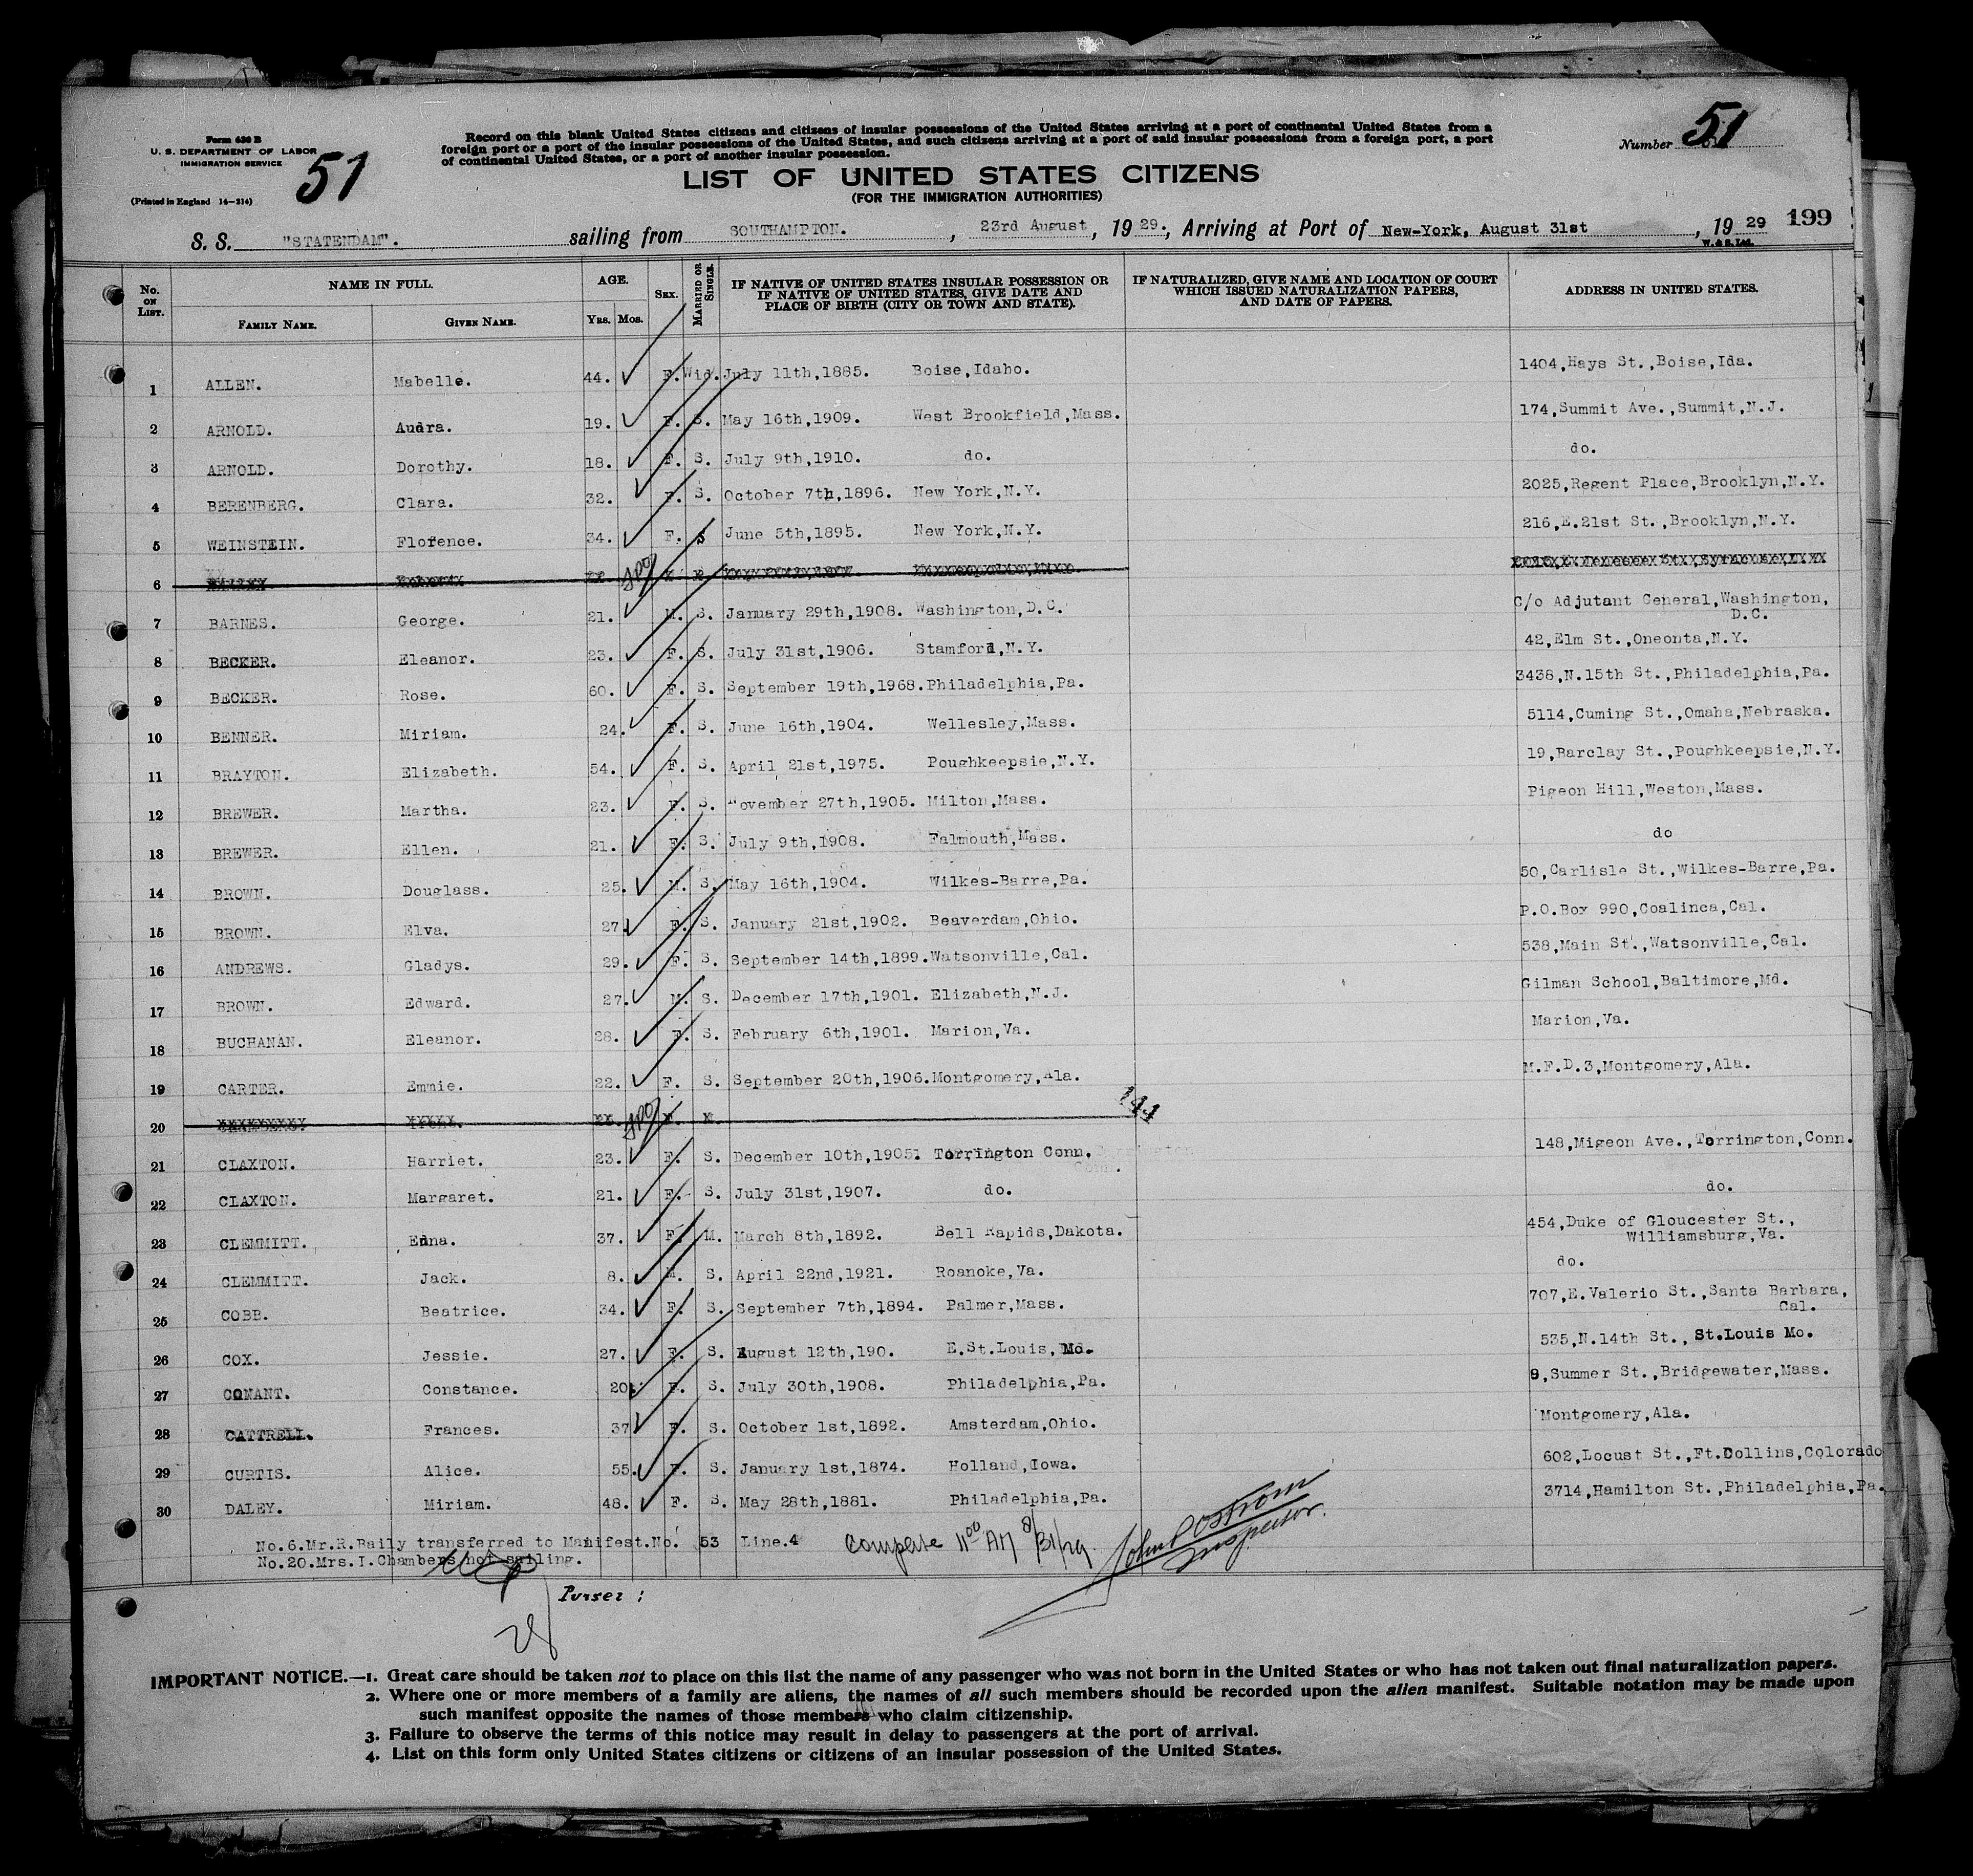 Form 630 B
U. S. DEPARTMENT OF LABOR
IMMIGRATION SERVICE
(Printed in England 14-214)
51
Record on this blank United States citizens and citizens of insular possessions of the United States arriving at a port of continental United States from a
foreign port or a port of the insular possessions of the United States, and such citizens arriving at a port of said insular possessions from a foreign port, a port
of continental United States, or a port of another insular possession.
Number 51
LIST OF UNITED STATES CITIZENS
(FOR THE IMMIGRATION AUTHORITIES)
S. S. "STATENDAM". sailing from SOUTHAMPTON. , 23rd August, 1929., Arriving at Port of New-York, August 31st , 1929 199
W. & S. Ltd.
No. ON LIST. NAME IN FULL. FAMILY NAME. GIVEN NAME. AGE. Yrs. Mos. SEX. MARRIED OR SINGLE. IF NATIVE OF UNITED STATES INSULAR POSSESSION OR IF NATIVE OF UNITED STATES, GIVE DATE AND PLACE OF BIRTH (CITY OR TOWN AND STATE). IF NATURALIZED, GIVE NAME AND LOCATION OF COURT WHICH ISSUED NATURALIZATION PAPERS, AND DATE OF PAPERS. ADDRESS IN UNITED STATES.
1 ALLEN. Mabelle. 44. F. Wid. July 11th,1885. Boise,Idaho. 1404,Hays St.,Boise,Ida.
2 ARNOLD. Audra. 19. F. S. May 16th,1909. West Brookfield,Mass. 174,Summit Ave.,Summit,N.J.
3 ARNOLD. Dorothy. 18. F. S. July 9th,1910. do. do.
4 BERENBERG. Clara. 32. F. S. October 7th,1896. New York,N.Y. 2025,Regent Place,Brooklyn,N.Y.
5 WEINSTEIN. Florence. 34. F. S June 5th,1895. New York,N.Y. 216,E.21st St.,Brooklyn,N.Y.
6
7 BARNES. George. 21. M. S. January 29th,1908. Washington,D.C. C/o Adjutant General,Washington, D.C.
8 BECKER. Eleanor. 23. F. S. July 31st,1906. Stamford,N.Y. 42,Elm St.,Oneonta,N.Y.
9 BECKER. Rose. 60. F. S. September 19th,1968. Philadelphia,Pa. 3438,N.15th St.,Philadelphia,Pa.
10 BENNER. Miriam. 24. F. S. June 16th,1904. Wellesley,Mass. 5114,Cuming St.,Omaha,Nebraska.
11 BRAYTON. Elizabeth. 54. F. S. April 21st,1975. Poughkeepsie,N.Y. 19,Barclay St.,Poughkeepsie,N.Y.
12 BREWER. Martha. 23. F. S. November 27th,1905. Milton,Mass. Pigeon Hill,Weston,Mass.
13 BREWER. Ellen. 21. F. S. July 9th,1908. Falmouth,Mass. do
14 BROWN. Douglass. 25. M. S. May 16th,1904. Wilkes-Barre,Pa. 50,Carlisle St.,Wilkes-Barre,Pa.
15 BROWN. Elva. 27. F. S. January 21st,1902. Beaverdam,Ohio. P.O.Box 990,Coalinca,Cal.
16 ANDREWS. Gladys. 29. F. S. September 14th,1899. Watsonville,Cal. 538,Main St.,Watsonville,Cal.
17 BROWN. Edward. 27. M. S. December 17th,1901. Elizabeth,N.J. Gilman School,Baltimore,Md.
18 BUCHANAN. Eleanor. 28. F. S. February 6th,1901. Marion,Va. Marion,Va.
19 CARTER. Emmie. 22. F. S. September 20th,1906. Montgomery,Ala. M.F.D.3,Montgomery,Ala.
20 144
21 CLAXTON. Harriet. 23. F. S. December 10th,1905. Torrington Conn. 148,Migeon Ave.,Torrington,Conn.
22 CLAXTON. Margaret. 21. F. S. July 31st,1907. do. do.
23 CLEMMITT. Edna. 37. F. M. March 8th,1892. Bell Rapids,Dakota. 454,Duke of Gloucester St., Williamsburg,Va.
24 CLEMMITT. Jack. 8. M. S. April 22nd,1921. Roanoke,Va. do.
25 COBB. Beatrice. 34. F. S. September 7th,1894. Palmer,Mass. 707,E.Valerio St.,Santa Barbara, Cal.
26 COX. Jessie. 27. F. S. August 12th,190. E.St.Louis, Mo. 535,N.14th St., St.Louis Mo.
27 CONANT. Constance. 20. F. S. July 30th,1908. Philadelphia,Pa. 9,Summer St.,Bridgewater,Mass.
28 CATTRELL. Frances. 37 F. S. October 1st,1892. Amsterdam,Ohio. Montgomery,Ala.
29 CURTIS. Alice. 55. F. S. January 1st,1874. Holland,Iowa. 602,Locust St.,Ft.Collins,Colorado
30 DALEY. Miriam. 48. F. S. May 28th,1881. Philadelphia,Pa. 3714,Hamilton St.,Philadelphia,Pa.
No.6.Mr.R.Baily transferred to Manifest.No. 53 Line.4
No.20.Mrs.I.Chambers not sailing.
Complete 11 00 AM 8/31/29. Inspector.
Purser :
28
IMPORTANT NOTICE.—1. Great care should be taken not to place on this list the name of any passenger who was not born in the United States or who has not taken out final naturalization papers.
2. Where one or more members of a family are aliens, the names of all such members should be recorded upon the alien manifest. Suitable notation may be made upon
such manifest opposite the names of those members who claim citizenship.
3. Failure to observe the terms of this notice may result in delay to passengers at the port of arrival.
4. List on this form only United States citizens or citizens of an insular possession of the United States.